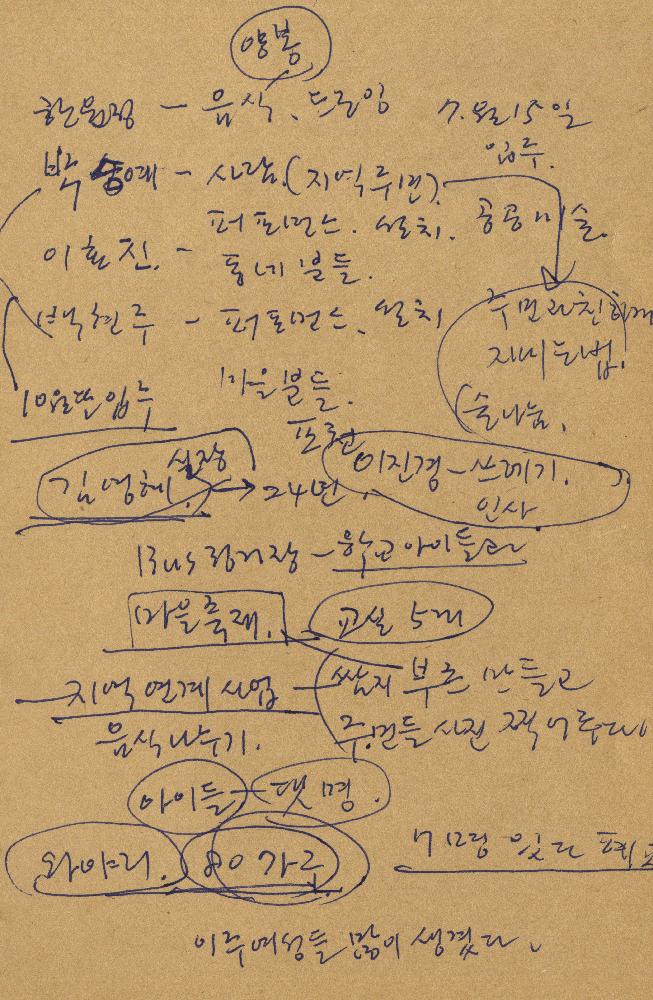 양봉
한뭄정 - 음식、드로잉
7.월15일
입주.
박승예 - 사람.(지역주민).
퍼포먼스. 설치.
공공미술.
이환진. -
동네분들.
백현주 - 퍼포먼스. 설치
주민과친하게
지내는법.
10월달입주
마을분들.
(술나눔.
포천
김영혜. 실장 → 24년.
이진경-쓰레기.
인사.
Bus정거장 - 학교아이들과
마을축제.
교실 5개
지역연계사업 - 쌈지 부흔 만들고
음식나누기.
주민들사진 찍어주다
아이들 - 댓명.
와야리. 80가구
이주여성들 많이 생겼다.